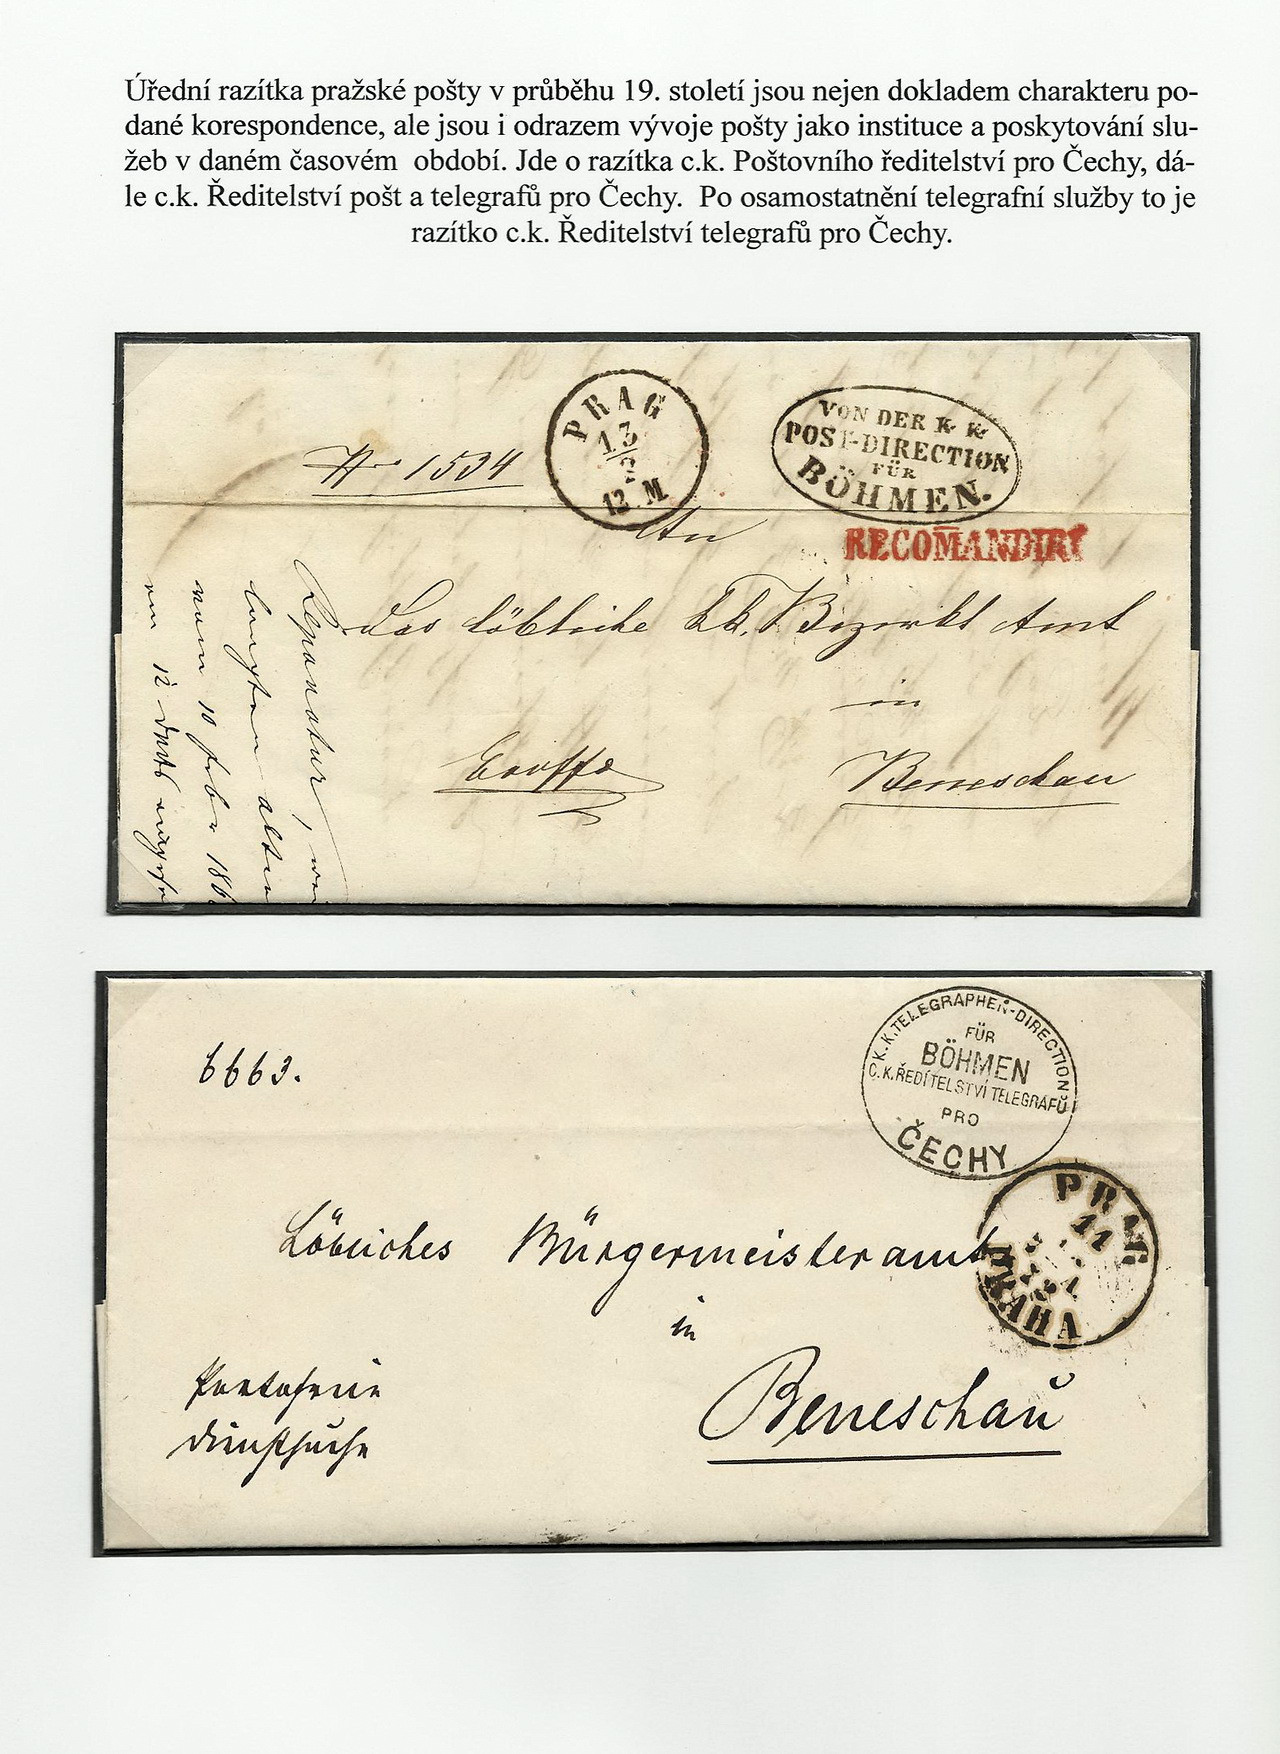 Úřední razítka pražské pošty v průběhu 19. století jsou nejen dokladem charakteru po-
dané korespondence, ale jsou i odrazem vývoje pošty jako instituce a poskytování slu-
žeb v daném časovém  období. Jde o razítka c.k. Poštovního ředitelství pro Čechy, dá-
le c.k. Ředitelství pošt a telegrafů pro Čechy.  Po osamostatnění telegrafní služby to je
razítko c.k. Ředitelství telegrafů pro Čechy.
PRAG
13
2
12. M
VON DER K. K.
POST-DIRECTION
FÜR
BÖHMEN.
RECOMANDIRT
No 1534
An
Das löbliche k.k. Bezirks Amt
in
Beneschau
vom 10 feber 186
K.K. TELEGRAPHEN-DIRECTION
FÜR
BÖHMEN
C.K. ŘEDITELSTVÍ TELEGRAFŮ
PRO
ČECHY
6663.
PRAG
11
PRAHA
Löbliches Bürgermeisteramt
in
Beneschau
Portofreie
Dienstsache